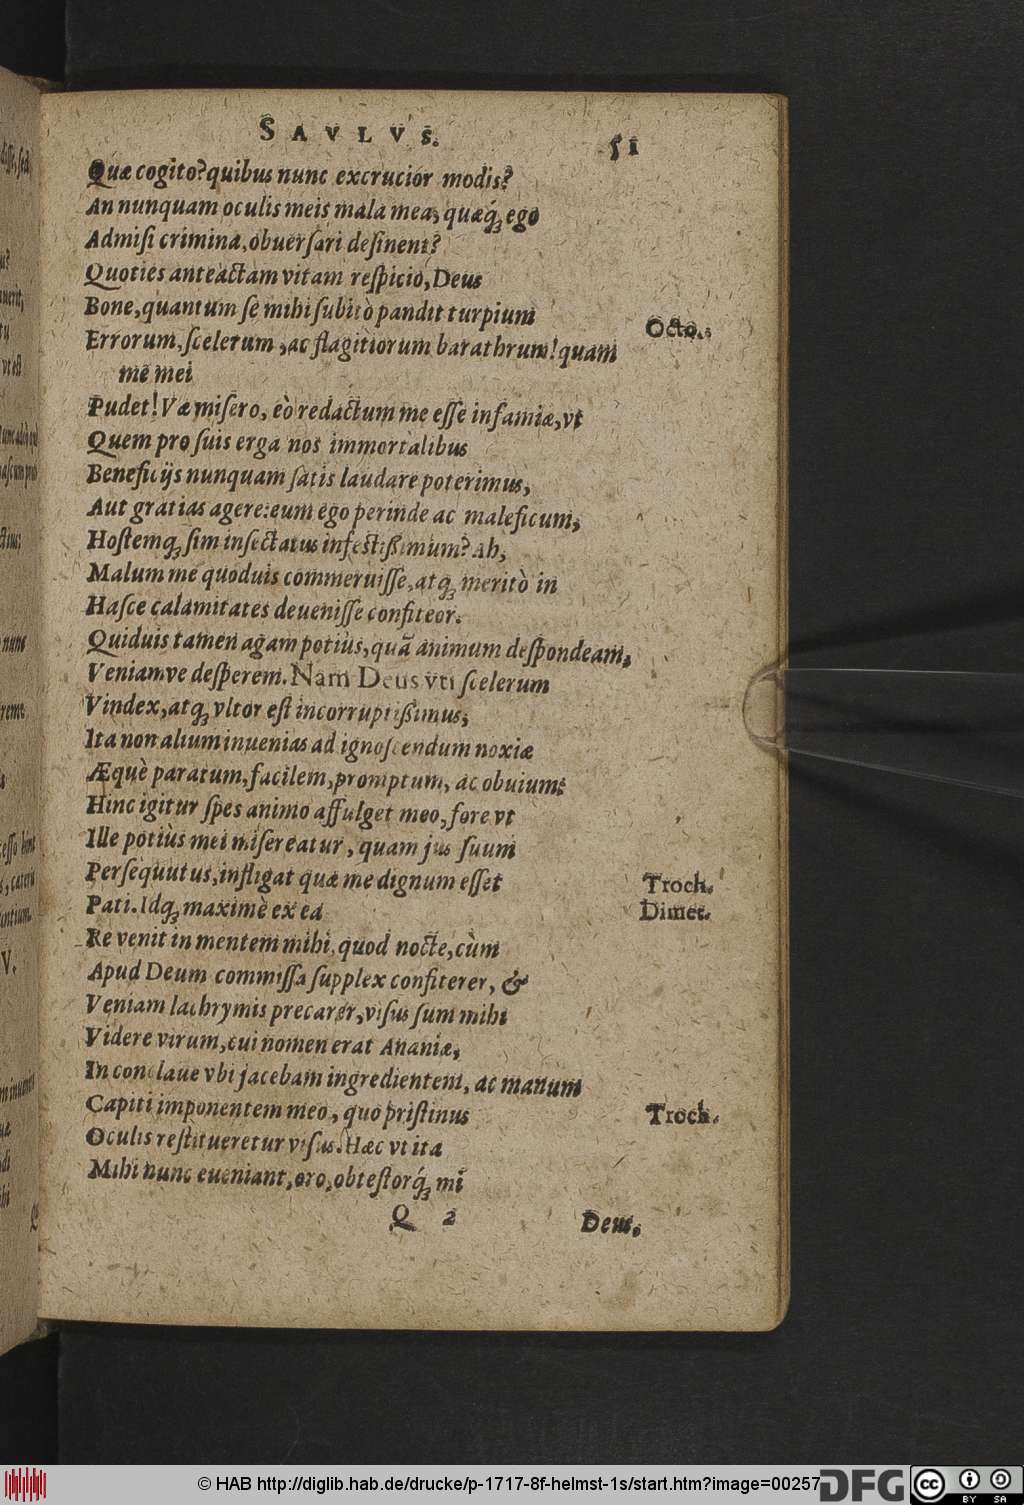 SAVLVS. 51
Quæ cogito? quibus nunc excrucior modis?
An nunquam oculis meis mala mea, quæq́; ego
Admiſi crimina, obuerſari deſinent?
Quoties anteactam vitam reſpicio, Deus
Bone, quantum ſe mihi ſubitò pandit turpium
Octo.
Errorum, ſcelerum, ac flagitiorum barathrum! quam
mē mei
Pudet! Væ miſero, eò redactum me eſſe infamiæ, vt
Quem pro ſuis erga nos immortalibus
Beneficijs nunquam ſatis laudare poterimus,
Aut gratias agere: eum ego perinde ac maleficum,
Hoſtemq; ſim inſectatus infeſtißimum? Ah,
Malum me quoduis commeruiſſe, atq; meritò in
Haſce calamitates deueniſſe confiteor.
Quiduis tamen agam potiùs, quā animum deſpondeam,
Veniamve deſperem. Nam Deus vti ſcelerum
Vindex, atq; vltor eſt incorruptißimus,
Ita non alium inuenias ad ignoſcendum noxiæ
Æquè paratum, facilem, promptum, ac obuium:
Hinc igitur ſpes animo affulget meo, fore vt
Ille potiùs mei miſereatur, quam jus ſuum
Perſequutus, infligat quæ me dignum eſſet
Troch.
Pati. Idq; maximè ex ea
Dimet.
Re venit in mentem mihi, quod nocte, cùm
Apud Deum commiſſa ſupplex confiterer, &
Veniam lachrymis precarer, viſus ſum mihi
Videre virum, cui nomen erat Ananiæ,
In conclaue vbi jacebam ingredientem, ac manum
Capiti imponentem meo, quo priſtinus
Troch.
Oculis reſtitueretur viſus. Hæc vt ita
Mihi nunc eueniant, oro, obteſtorq́; mi
Q 2 Deus.
© HAB http://diglib.hab.de/drucke/p-1717-8f-helmst-1s/start.htm?image=00257
DFG
cc BY SA